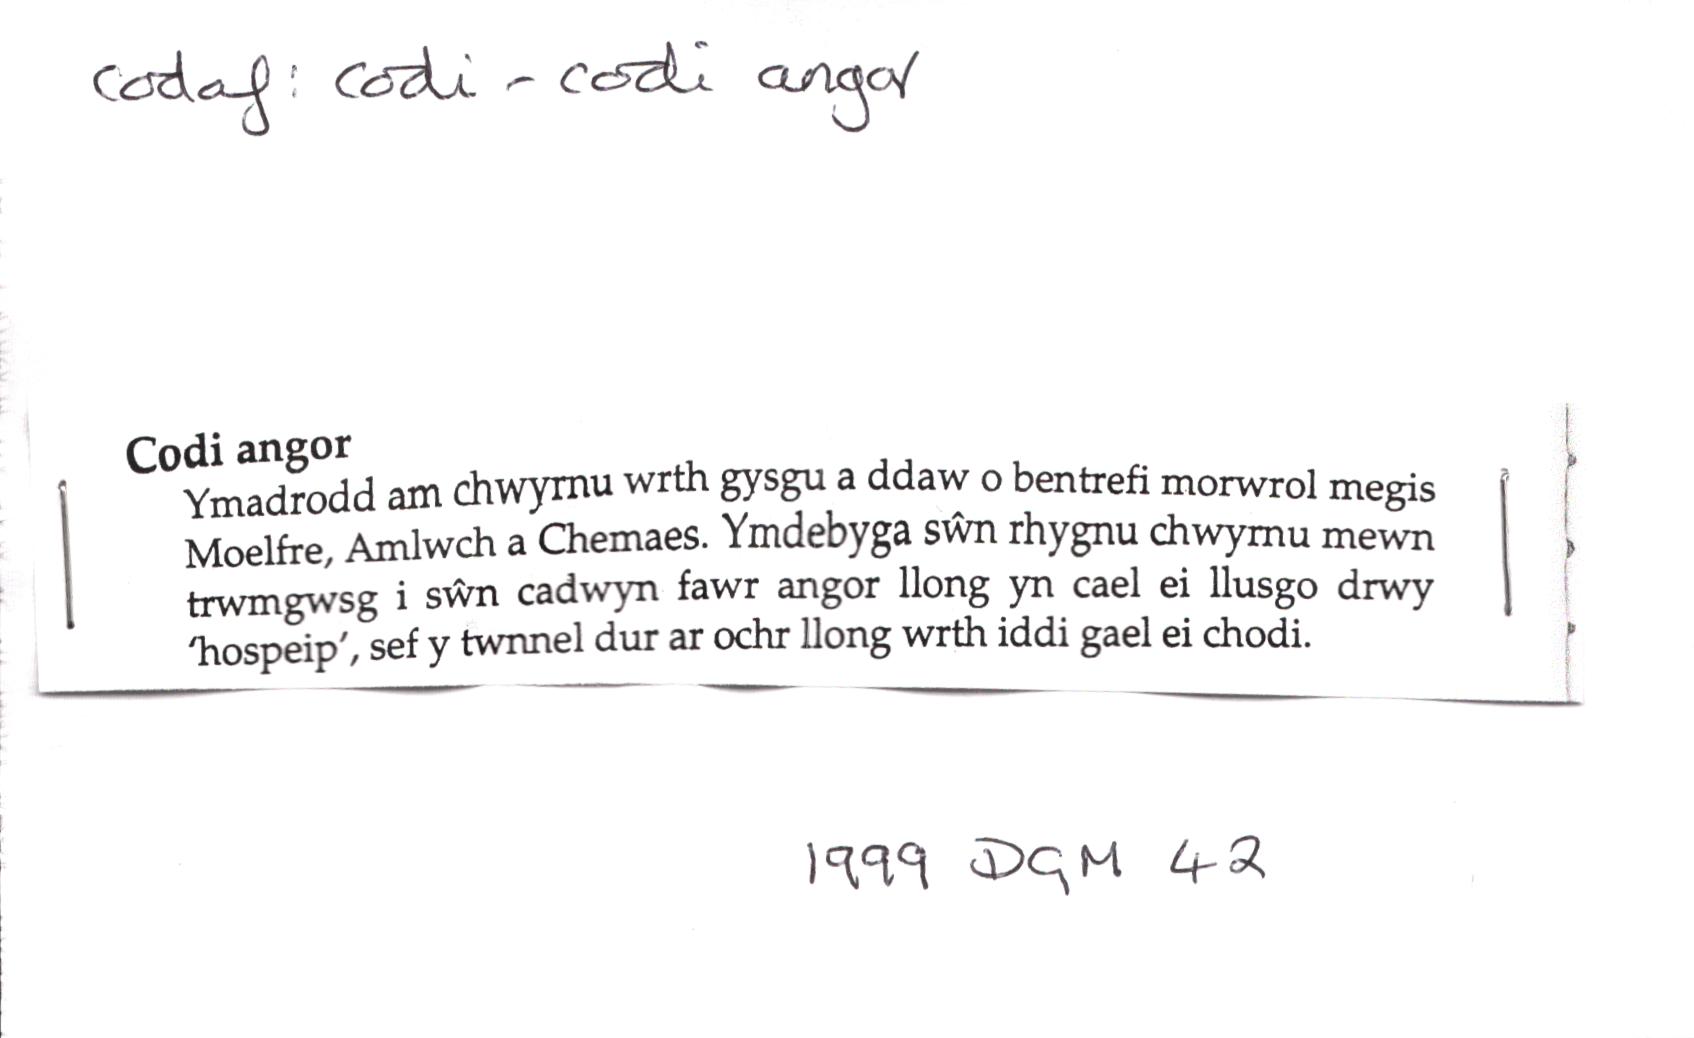 codaf: codi - codi angor
Codi angor
Ymadrodd am chwyrnu wrth gysgu a ddaw o bentrefi morwrol megis
Moelfre, Amlwch a Chemaes. Ymdebyga sŵn rhygnu chwyrnu mewn
trwmgwsg i sŵn cadwyn fawr angor llong yn cael ei llusgo drwy
‘hospeip’, sef y twnnel dur ar ochr llong wrth iddi gael ei chodi.
1999 DGM 42